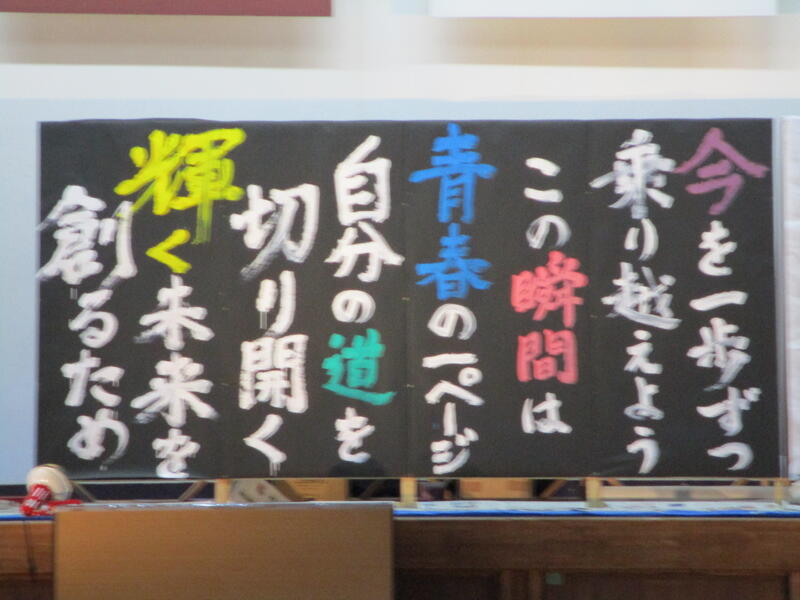 今を一歩ずつ
乗り越えよう
この瞬間は
青春の一ページ
自分の道を
切り開く
輝く未来を
創るため